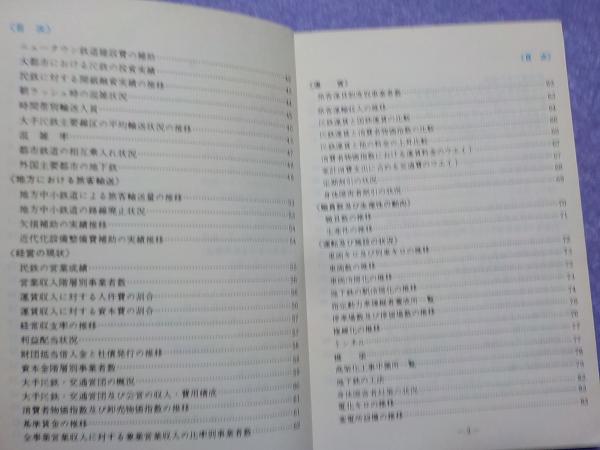 〈目 次〉
ニュータウン鉄道建設費の補助
大都市における民鉄の投資実績 42
民鉄に対する開銀融資実績の推移 43
朝ラッシュ時の混雑状況 44
時間帯別輸送人員 44
大手民鉄主要線区の平均輸送状況の推移 45
混雑率 46
都市鉄道の相互乗入れ状況
外国主要都市の地下鉄
〈地方における旅客輸送〉
地方中小鉄道による旅客輸送量の推移
地方中小鉄道の路線廃止状況
欠損補助の実績推移
近代化設備整備費補助の実績推移 54
〈経営の現状〉
民鉄の営業成績 55
営業収入階層別事業者数
運賃収入に対する人件費の割合
運賃収入に対する資本費の割合
経常収支率の推移
利益配当状況
財団抵当借入金と社債発行の推移
資本金階層別事業者数
大手民鉄・交通営団の概況
大手民鉄・交通営団及び公営の収入・費用構成
消費者物価指数及び卸売物価指数の推移
基準賃金の推移
全事業営業収入に対する兼業営業収入の比率別事業者数
〈目 次〉
〈運 賃〉
旅客運賃制度別事業者数
旅客運輸収入の推移
民鉄運賃と国鉄運賃の比較
民鉄運賃と消費者物価指数の比較
民鉄運賃と他の料金の上昇比較
消費者物価指数における運賃料金のウエイト
家計消費支出に占める交通費のウエイト
定期割引の状況
身体障害者割引の状況
〈職員数及び生産性の動向〉
職員数の推移 70
生産性の推移 71
〈運転及び施設の状況〉
車両キロ及び列車キロの推移
車両数の推移
車両冷房化の推移
地下鉄の駅冷房化の推移
指定動力車操縦者養成所一覧
停車場数及び停留場数の推移
複線化の推移
トンネル
橋 梁
高架化工事中箇所一覧
地下鉄の工法
身体障害者対策の状況
電化キロの推移
変電所設備の推移
―3―